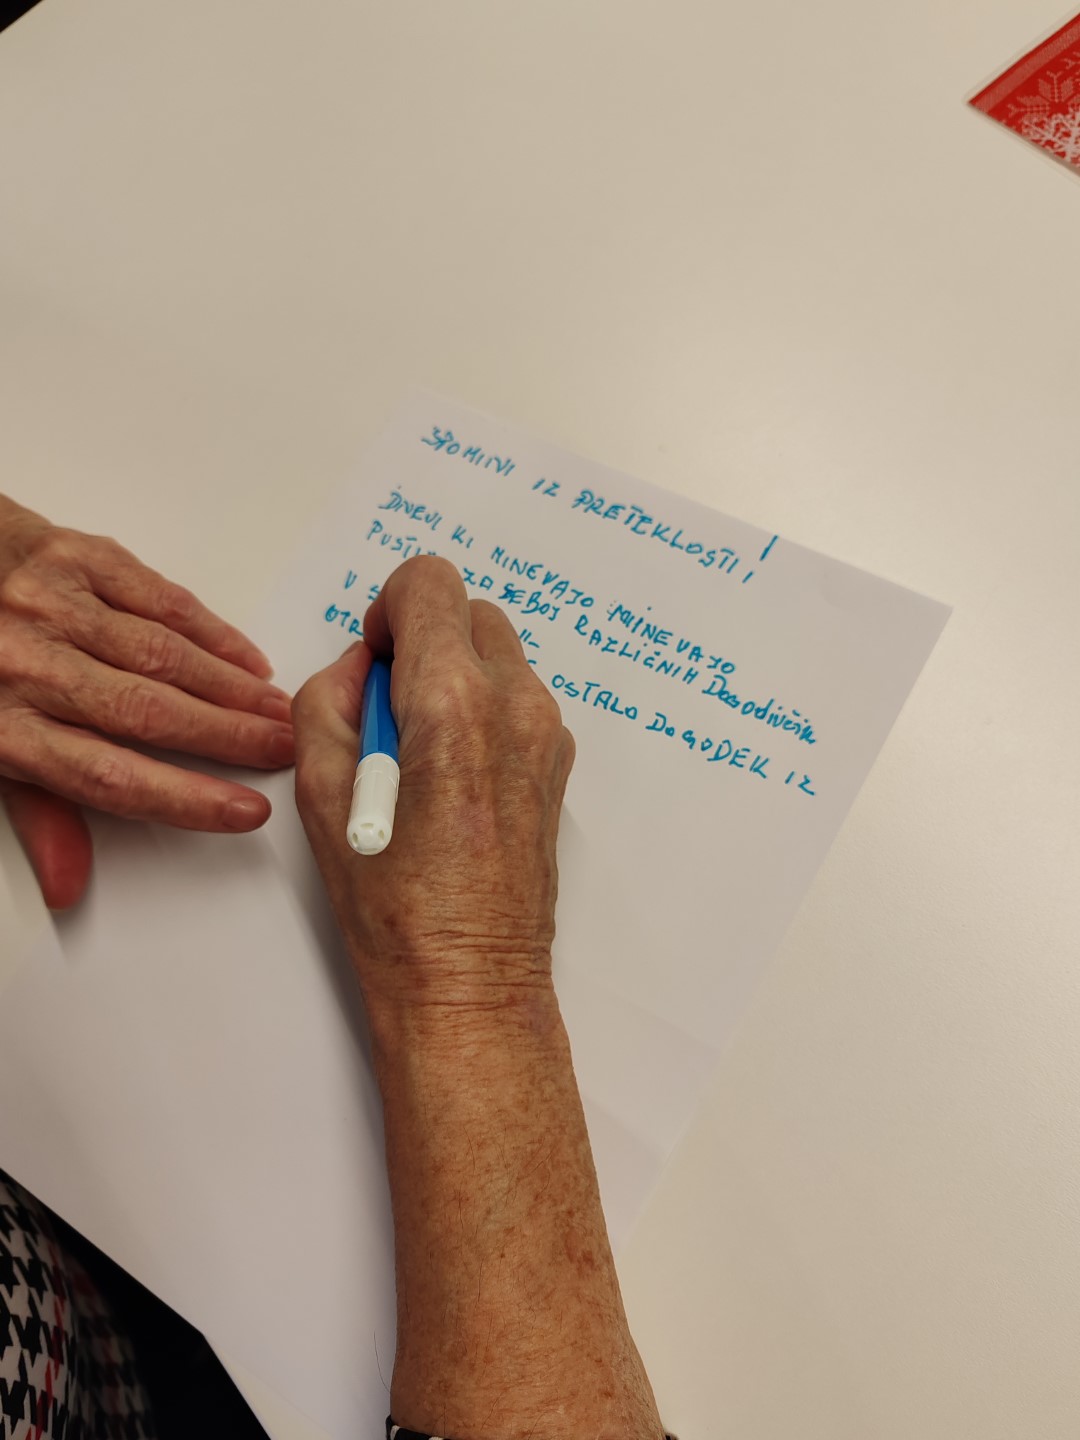 SPOMINI IZ PRETEKLOSTI!
DNEVI KI MINEVAJO MINEVAJO
ZA SEBOJ RAZLIČNIH DOGODIVŠČIN
V
OSTALO DOGODEK IZ
OTR